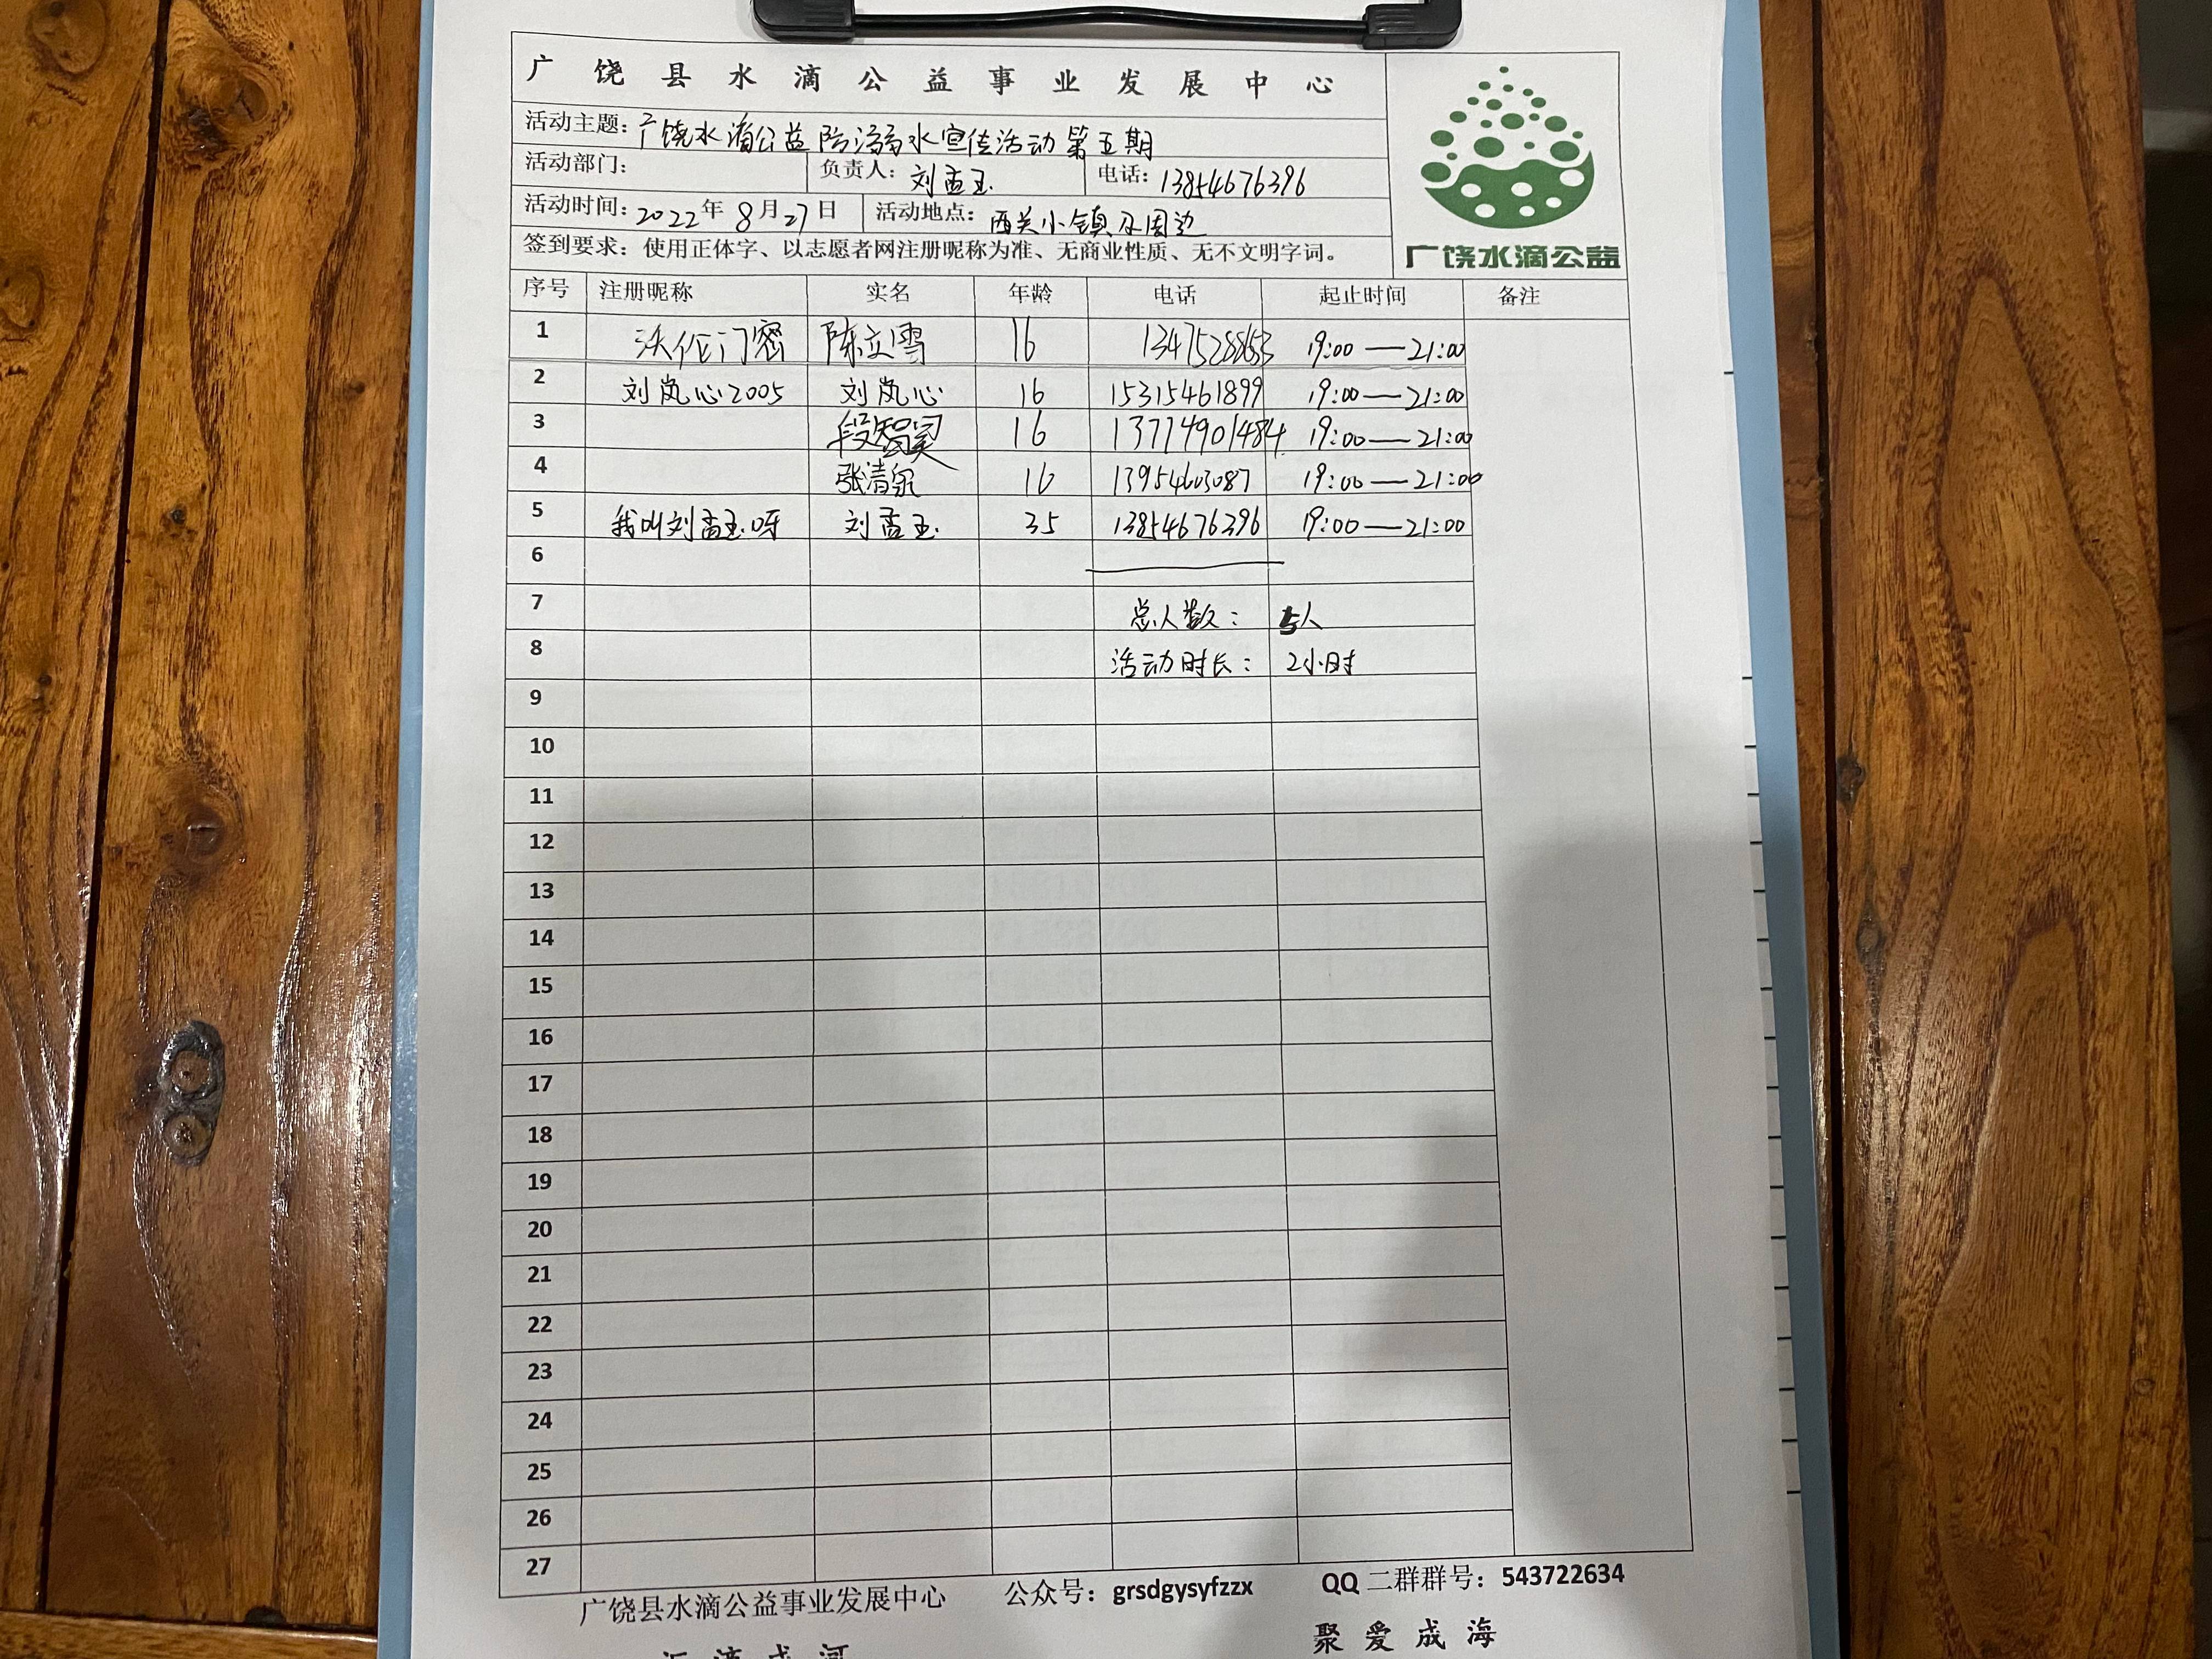 广饶县水滴公益事业发展中心
活动主题：广饶水滴公益防溺水宣传活动第五期
活动部门： 负责人：刘孟玉 电话：13854676396
活动时间：2022年8月27日 活动地点：西关小镇及周边
签到要求：使用正体字、以志愿者网注册昵称为准、无商业性质、无不文明字词。
广饶水滴公益
序号 注册昵称 实名 年龄 电话 起止时间 备注
1 沃作门密 陈立雪 16 19:00—21:00
2 刘岚心2005 刘岚心 16 15315461899 19:00—21:00
3 16 19:00—21:00
4 张清泉 16 13954603087 19:00—21:00
5 我叫刘孟玉呀 刘孟玉 35 13854676396 19:00—21:00
6
7 总人数： 5人
8 活动时长： 2小时
9
10
11
12
13
14
15
16
17
18
19
20
21
22
23
24
25
26
27
广饶县水滴公益事业发展中心 公众号：grsdgysyfzzx QQ二群群号：543722634
汇滴成河 聚爱成海